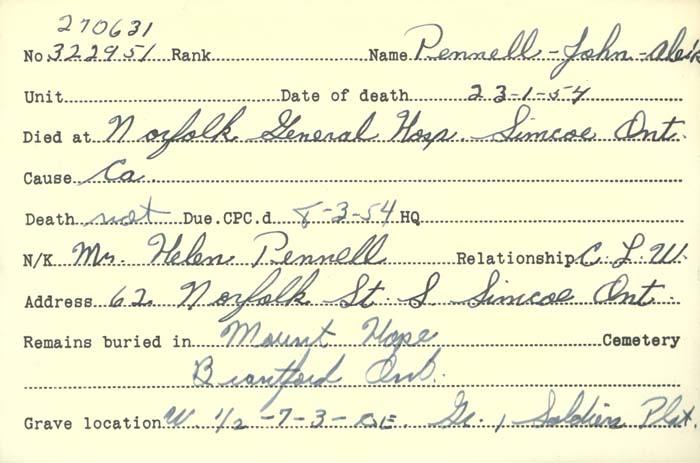 270631
No. 322951 Rank Name Pennell - John - Aleck
Unit Date of death 23-1-54
Died at Norfolk General Hosp. Simcoe Ont.
Cause Ca.
Death not Due. CPC.d 8-3-54 HQ
N/K Mr. Helen Pennell Relationship C. L. W.
Address 62 Norfolk St. S Simcoe Ont.
Remains buried in Mount Hope Cemetery
Brantford Ont.
Grave location W 1/2 -7-3- Gr., Soldiers Plot.